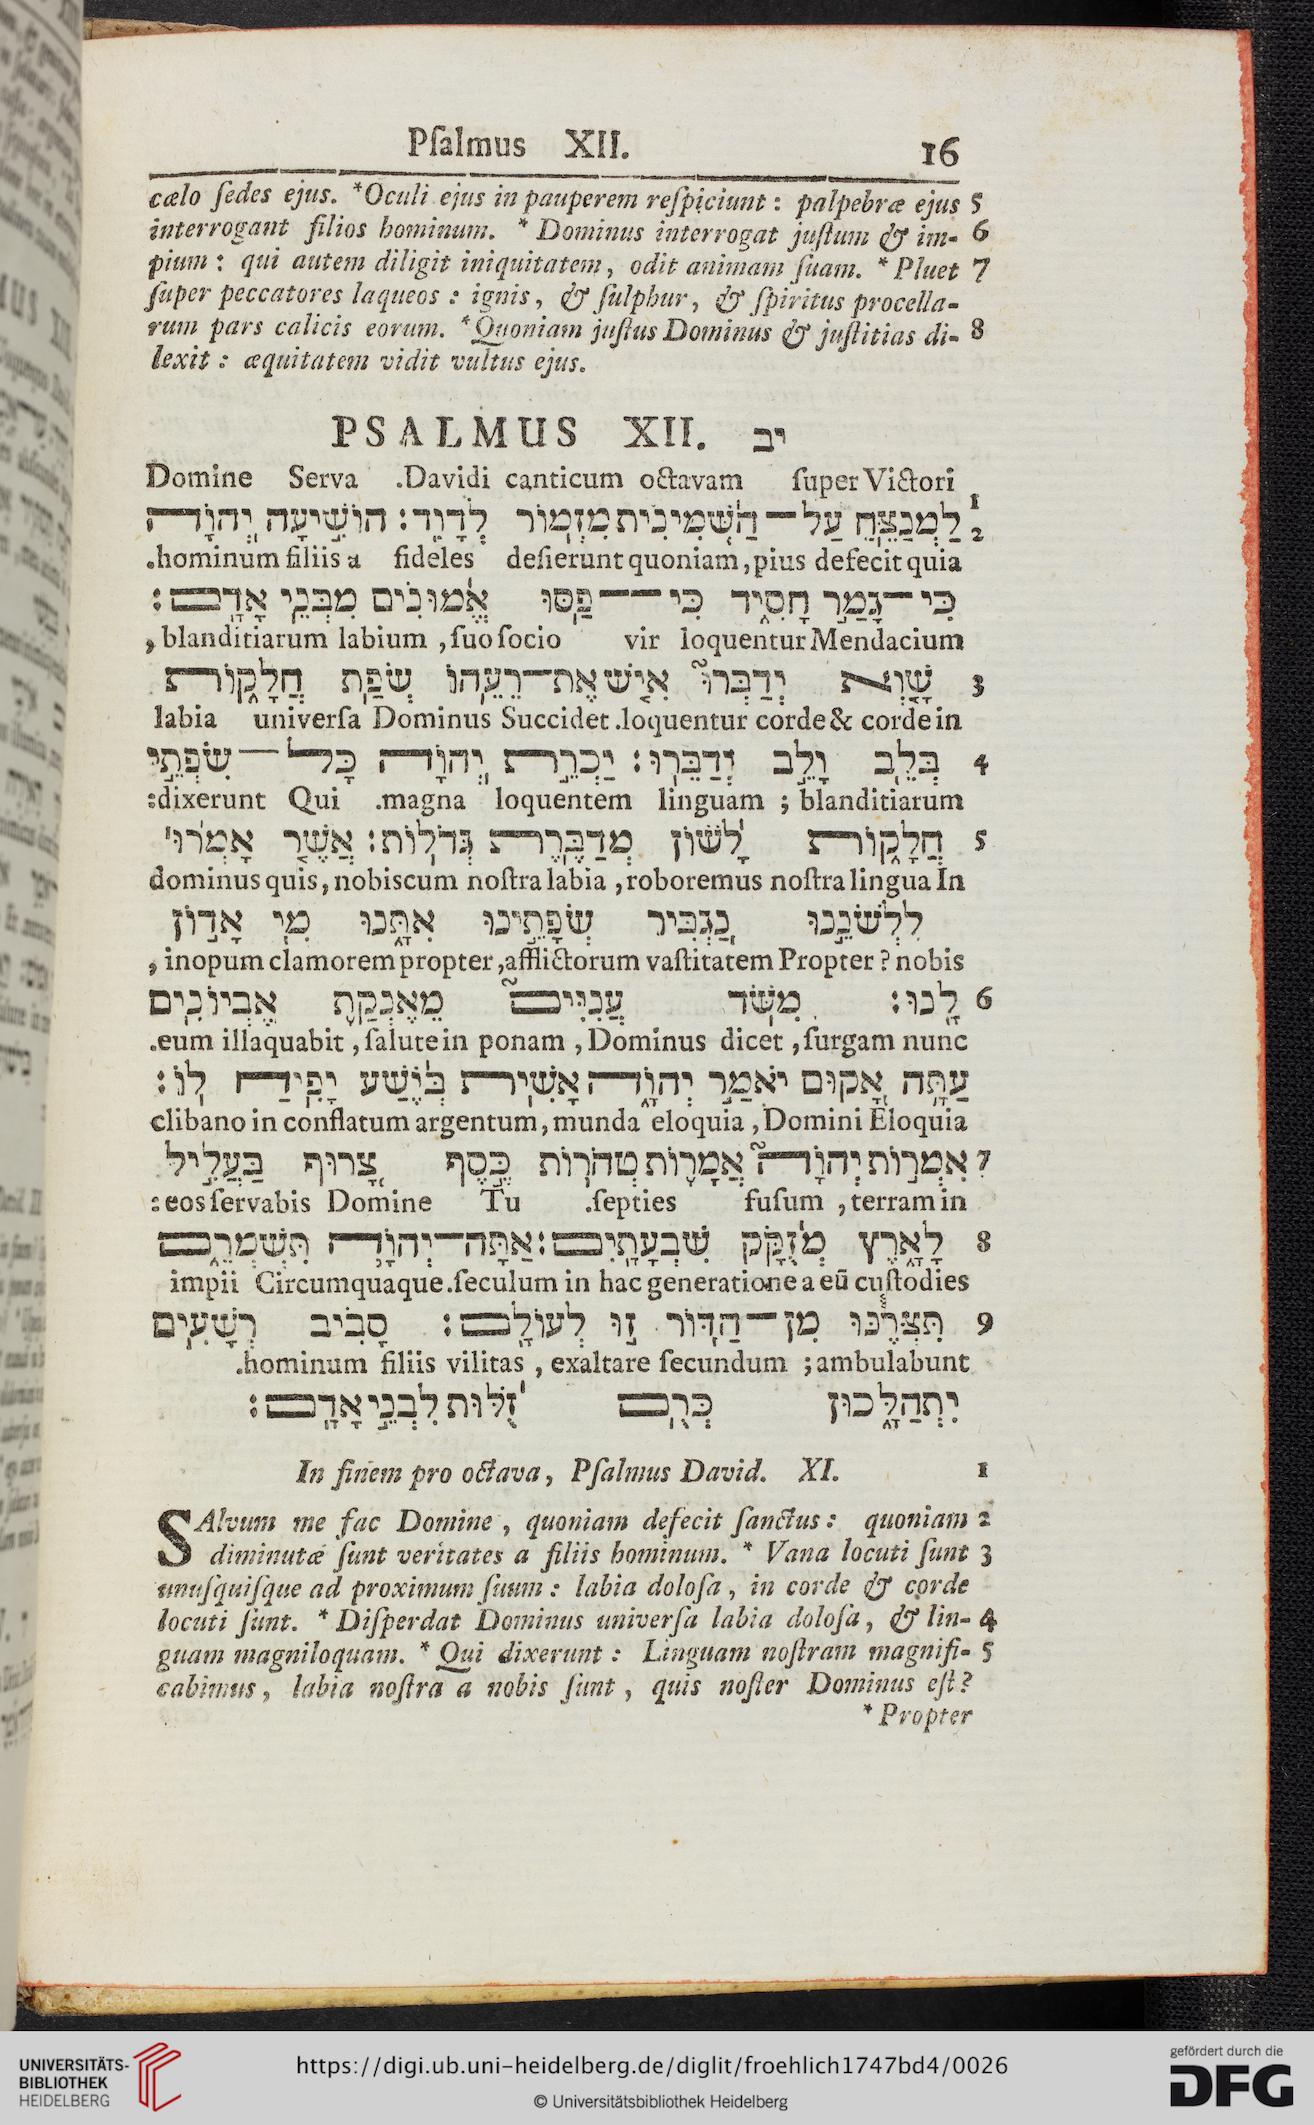 Pſalmus XII. 16
cælo ſedes ejus. *Oculi ejus in pauperem reſpiciunt : palpebræ ejus 5
interrogant filios hominum. * Dominus interrogat juſtum & im- 6
pium : qui autem diligit iniquitatem, odit animam ſuam. * Pluet 7
ſuper peccatores laqueos : ignis, & ſulphur, & ſpiritus procella-
rum pars calicis eorum. *Quoniam juſtus Dominus & juſtitias di- 8
lexit : æquitatem vidit vultus ejus.
PSALMUS XII. יב
Domine Serva .Davidi canticum octavam ſuper Victori
1 2 לַמְנַצֵּחַ עַל־הַשְּׁמִינִית מִזְמוֹר לְדָוִד׃ הוֹשִׁיעָה יְהוָֹה
.hominum filiis a fideles deſierunt quoniam, pius defecit quia
כִּי־גָמַר חָסִיד כִּי־־פַסּוּ אֱמוּנִים מִבְּנֵי אָדָם׃
, blanditiarum labium , ſuo ſocio vir loquentur Mendacium
3 שָׁוְא יְדַבְּרוּ אִישׁ אֶת־רֵעֵהוּ שְׂפַת חֲלָקוֹת
labia univerſa Dominus Succidet .loquentur corde & corde in
4 בְּלֵב וָלֵב יְדַבֵּרוּ׃ יַכְרֵת יְהוָֹה כָּל־שִׂפְתֵי
:dixerunt Qui .magna loquentem linguam ; blanditiarum
5 חֲלָקוֹת לָשׁוֹן מְדַבֶּרֶת גְּדֹלוֹת׃ אֲשֶׁר אָמְרוּ
dominus quis, nobiscum noſtra labia , roboremus noſtra lingua In
לִלְשֹׁנֵנוּ נַגְבִּיר שְׂפָתֵינוּ אִתָּנוּ מִי אָדוֹן
, inopum clamorem propter ,afflictorum vaſtitatem Propter ? nobis
6 לָנוּ׃ מִשֹּׁד עֲנִיִּים מֵאֶנְקַת אֶבְיוֹנִים
.eum illaquabit , ſalute in ponam , Dominus dicet , ſurgam nunc
עַתָּה אָקוּם יֹאמַר יְהוָֹה אָשִׁית בְּיֵשַׁע יָפִיחַ לוֹ׃
clibano in conflatum argentum, munda eloquia , Domini Eloquia
7 אִמְרוֹת יְהוָֹה אֲמָרוֹת טְהֹרוֹת כֶּסֶף צָרוּף בַּעֲלִיל
: eos ſervabis Domine Tu .ſepties fuſum , terram in
8 לָאָרֶץ מְזֻקָּק שִׁבְעָתָיִם׃ אַתָּה־יְהוָֹה תִּשְׁמְרֵם
impii Circumquaque .ſeculum in hac generatione a eū cuſtodies
9 תִּצְּרֶנּוּ מִן־הַדּוֹר זוּ לְעוֹלָם׃ סָבִיב רְשָׁעִים
.hominum filiis vilitas , exaltare ſecundum ; ambulabunt
יִתְהַלָּכוּן כְּרֻם זֻלּוּת לִבְנֵי אָדָם׃
In finem pro octava, Pſalmus David. XI. 1
SAlvum me fac Domine , quoniam defecit ſanctus : quoniam 2
diminutæ ſunt veritates a filiis hominum. * Vana locuti ſunt 3
unuſquiſque ad proximum ſuum : labia doloſa , in corde & corde
locuti ſunt. * Diſperdat Dominus univerſa labia doloſa, & lin- 4
guam magniloquam. * Qui dixerunt : Linguam noſtram magnifi- 5
cabimus, labia noſtra a nobis ſunt , quis noſter Dominus eſt?
* Propter
UNIVERSITÄTS-
BIBLIOTHEK
HEIDELBERG
https://digi.ub.uni-heidelberg.de/diglit/froehlich1747bd4/0026
© Universitätsbibliothek Heidelberg
gefördert durch die
DFG